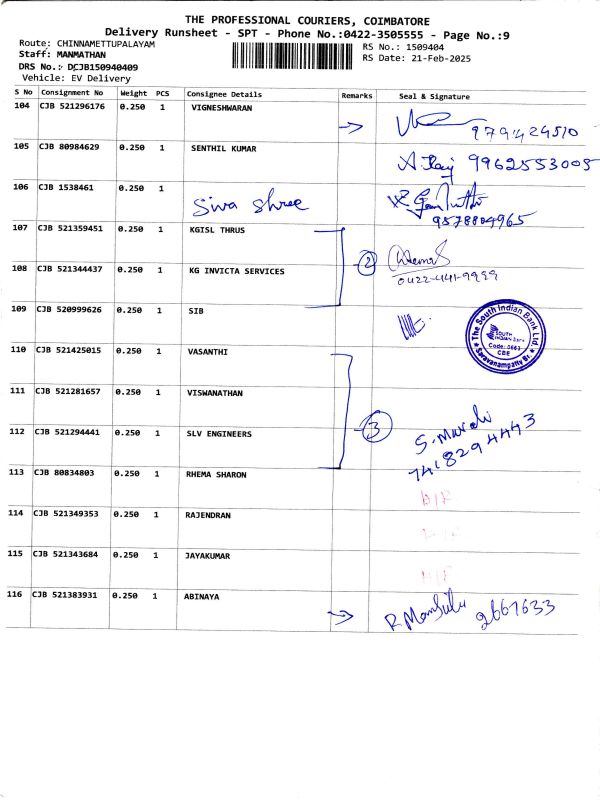 THE PROFESSIONAL COURIERS, COIMBATORE
Delivery Runsheet - SPT - Phone No.:0422-3505555 - Page No.:9
Route: CHINNAMETTUPALAYAM
Staff: MANMATHAN
DRS No.:- DCJB150940409
Vehicle: EV Delivery
RS No.: 1509404
RS Date: 21-Feb-2025
S No Consignment No Weight PCS Consignee Details Remarks Seal & Signature
104 CJB 521296176 0.250 1 VIGNESHWARAN
9791424510
105 CJB 80984629 0.250 1 SENTHIL KUMAR
9962553005
106 CJB 1538461 0.250 1 Siva Shree
9578804965
107 CJB 521359451 0.250 1 KGISL THRUS
2
108 CJB 521344437 0.250 1 KG INVICTA SERVICES
0422-4419999
109 CJB 520999626 0.250 1 SIB
The South Indian Bank Ltd.
SOUTH
INDIAN Bank
Code: 0663
CBE
Saravanampatty Br.
110 CJB 521425015 0.250 1 VASANTHI
111 CJB 521281657 0.250 1 VISWANATHAN
3
112 CJB 521294441 0.250 1 SLV ENGINEERS
S. Murali
7418294443
113 CJB 80834803 0.250 1 RHEMA SHARON
114 CJB 521349353 0.250 1 RAJENDRAN
115 CJB 521343684 0.250 1 JAYAKUMAR
116 CJB 521383931 0.250 1 ABINAYA
2667633